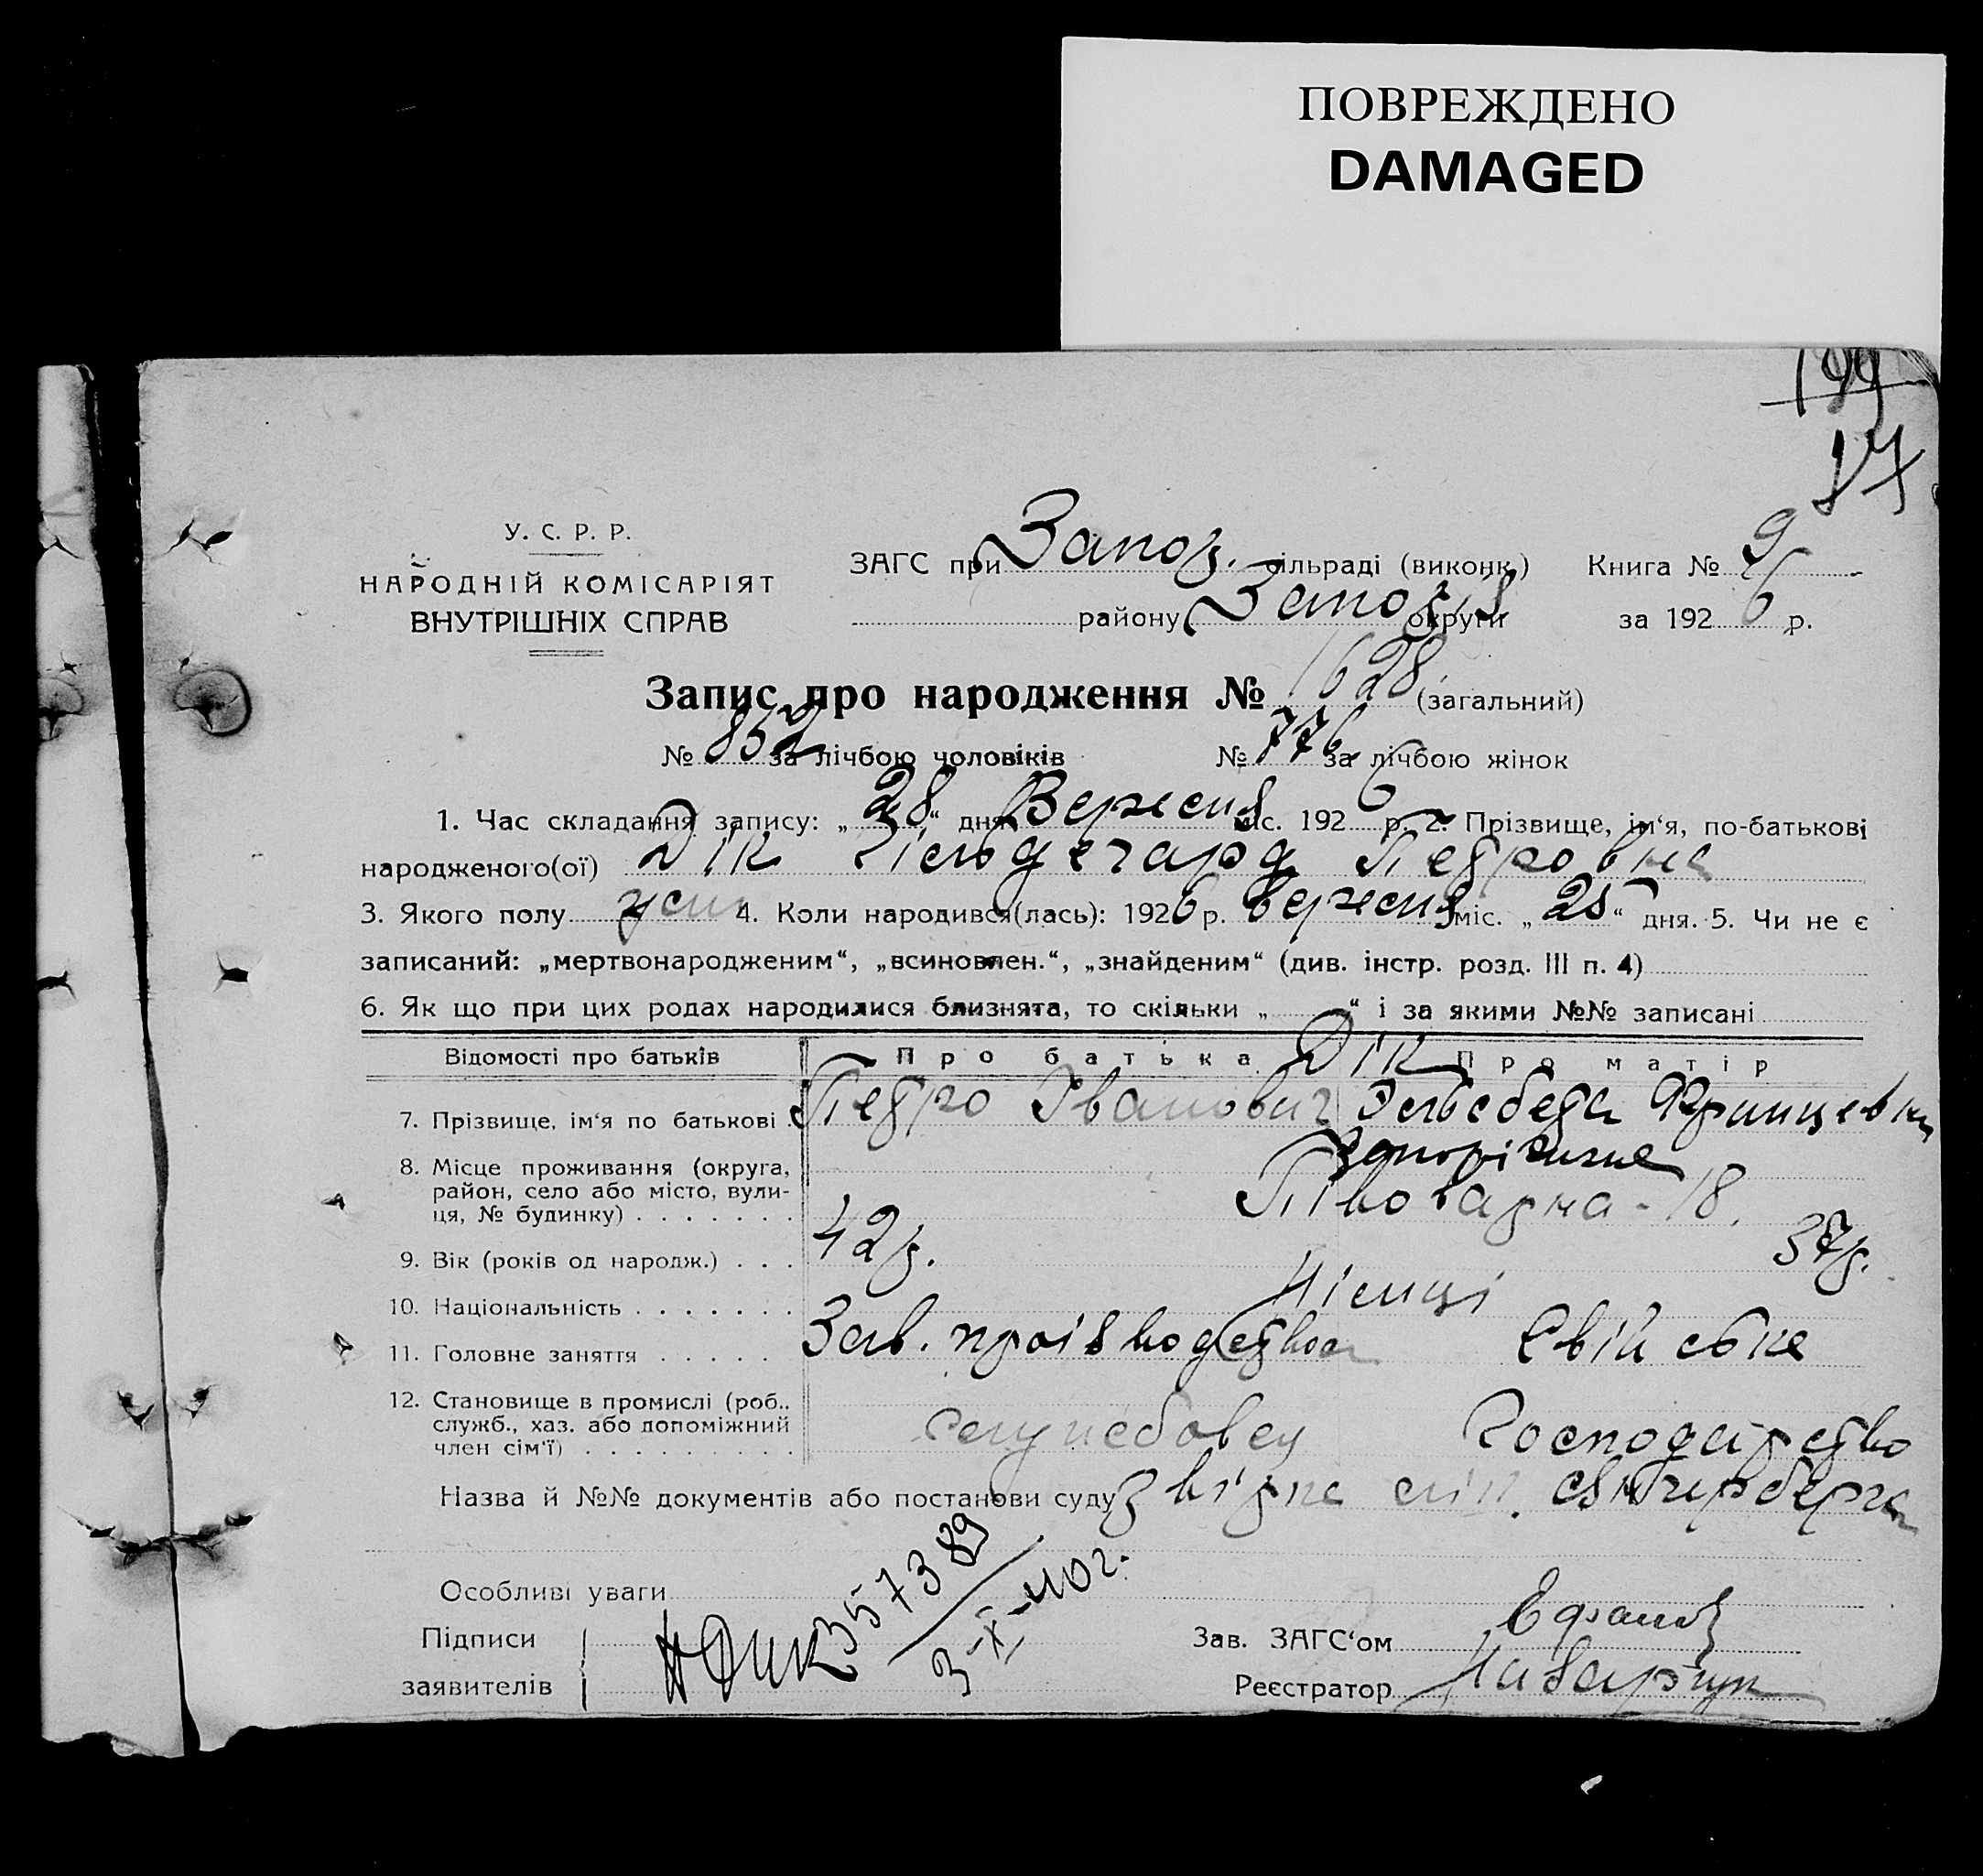 ПОВРЕЖДЕНО
DAMAGED
199
17
У. С. Р. Р.
НАРОДНІЙ КОМІСАРІЯТ
ВНУТРІШНІХ СПРАВ
ЗАГС при Запоз. сільраді (виконк.) Книга № 9
району Запоріз округи за 1926 р.
Запис про народження № 1628 (загальний)
№ 852 за лічбою чоловіків № 776 за лічбою жінок
1. Час складання запису: „28“ дня Вересня міс. 1926 р. 2. Прізвище, ім‘я, по-батькові
народженого(ої) Дік Гільдегард Петровна
3. Якого полу жін 4. Коли народився(лась): 1926 р. вересня міс. „25“ дня. 5. Чи не є
записаний: „мертвонародженим“, „всиновлен.“, „знайденим“ (див. інстр. розд. III п. 4)
6. Як що при цих родах народилися близнята, то скільки „ “ і за якими №№ записані
Відомості про батьків Про батька Дік Про матір
7. Прізвище, ім‘я по батькові Петро Іванович Єлізабета Францевна
8. Місце проживання (округа, Запоріжжє
район, село або місто, вули- Півоварна - 18.
ця, № будинку)
9. Вік (років од народж.) 42р. 37р.
10. Національність Німці
11. Головне заняття Зав. проізводства Євійське
12. Становище в промислі (роб..
служб., хаз. або допоміжний службовец Господарство
член сім‘ї)
Назва й №№ документів або постанови суду
Особливі уваги
357389
3-X-40 г.
Підписи
заявителів Дик
Зав. ЗАГС‘ом
Реєстратор